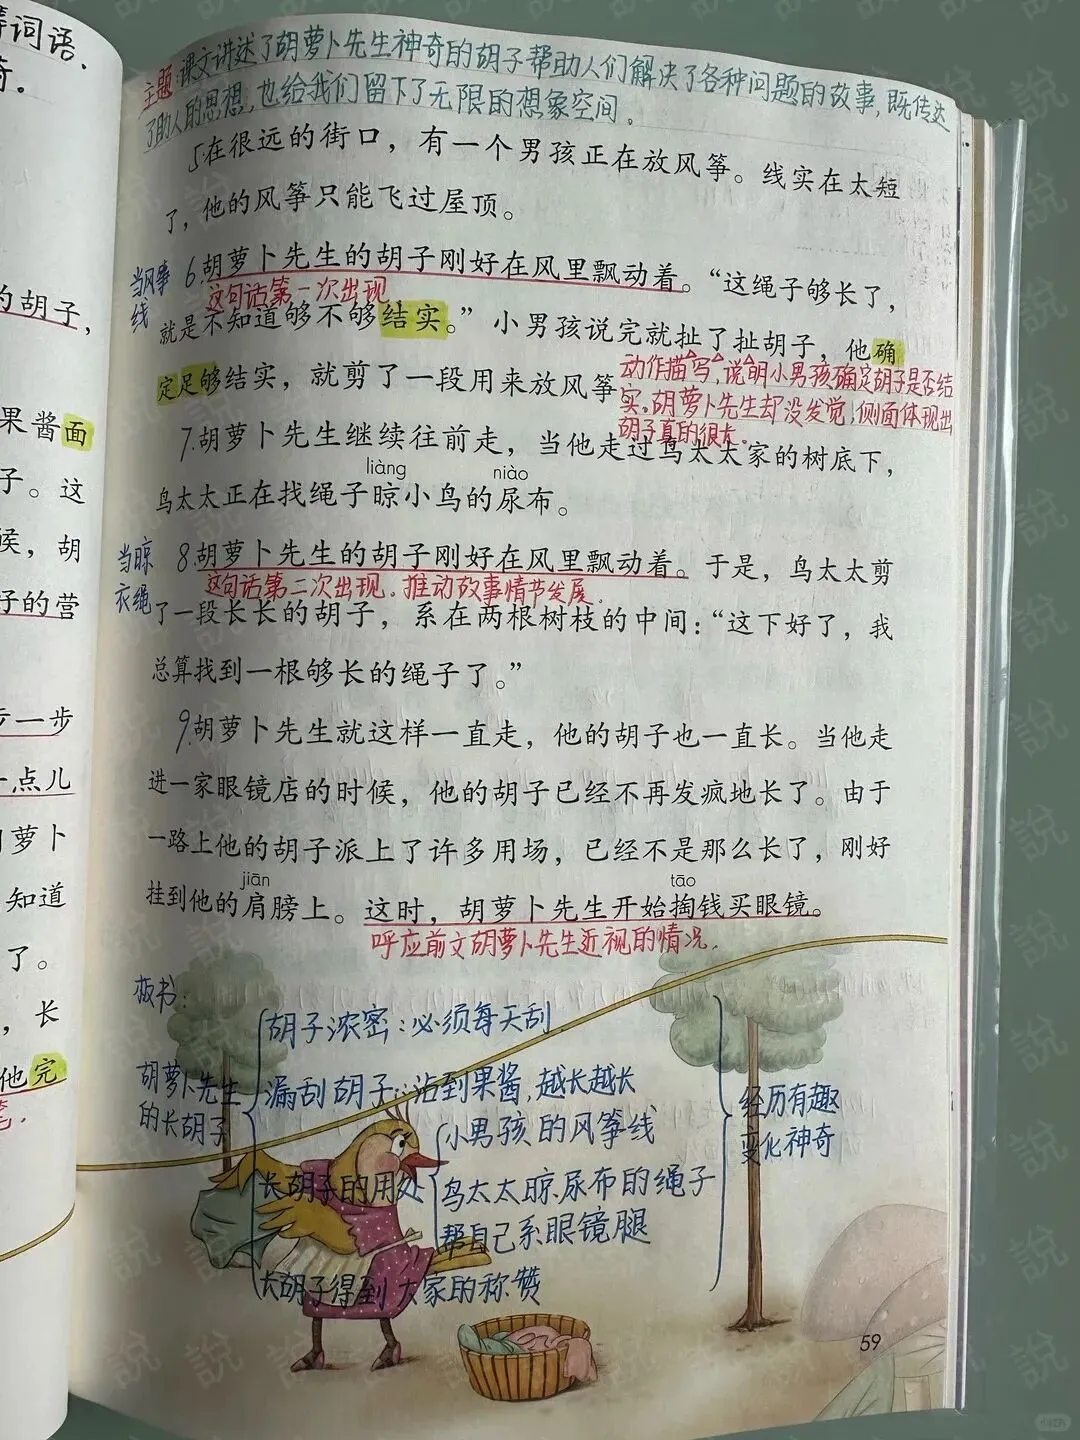 等词语.
奇.
的胡子，
果酱面
子。这
候，胡
子的营
步一步
一点儿
萝卜
知道
了。
，长
他完
笔.
主题:课文讲述了胡萝卜先生神奇的胡子帮助人们解决了各种问题的故事,既传达
了助人的思想,也给我们留下了无限的想象空间.
5.在很远的街口，有一个男孩正在放风筝。线实在太短
了，他的风筝只能飞过屋顶。
当风筝线
6.胡萝卜先生的胡子刚好在风里飘动着。“这绳子够长了，
这句话第一次出现
就是不知道够不够结实。”小男孩说完就扯了扯胡子，他确
定足够结实，就剪了一段用来放风筝
动作描写,说明小男孩确定胡子是否结
实.胡萝卜先生却没发觉,侧面体现出
胡子真的很长.
7.胡萝卜先生继续往前走，当他走过鸟太太家的树底下，
liàng niào
鸟太太正在找绳子晾小鸟的尿布。
当晾衣绳
8.胡萝卜先生的胡子刚好在风里飘动着。于是，鸟太太剪
这句话第二次出现.推动故事情节发展.
了一段长长的胡子，系在两根树枝的中间：“这下好了，我
总算找到一根够长的绳子了。”
9.胡萝卜先生就这样一直走，他的胡子也一直长。当他走
进一家眼镜店的时候，他的胡子已经不再发疯地长了。由于
一路上他的胡子派上了许多用场，已经不是那么长了，刚好
jiān tāo
挂到他的肩膀上。这时，胡萝卜先生开始掏钱买眼镜。
呼应前文胡萝卜先生近视的情况.
板书:
胡萝卜先生
的长胡子
胡子浓密:必须每天刮
漏刮胡子:沾到果酱,越长越长
长胡子的用处
小男孩的风筝线
鸟太太晾尿布的绳子
帮自己系眼镜腿
长胡子得到大家的称赞
经历有趣
变化神奇
59